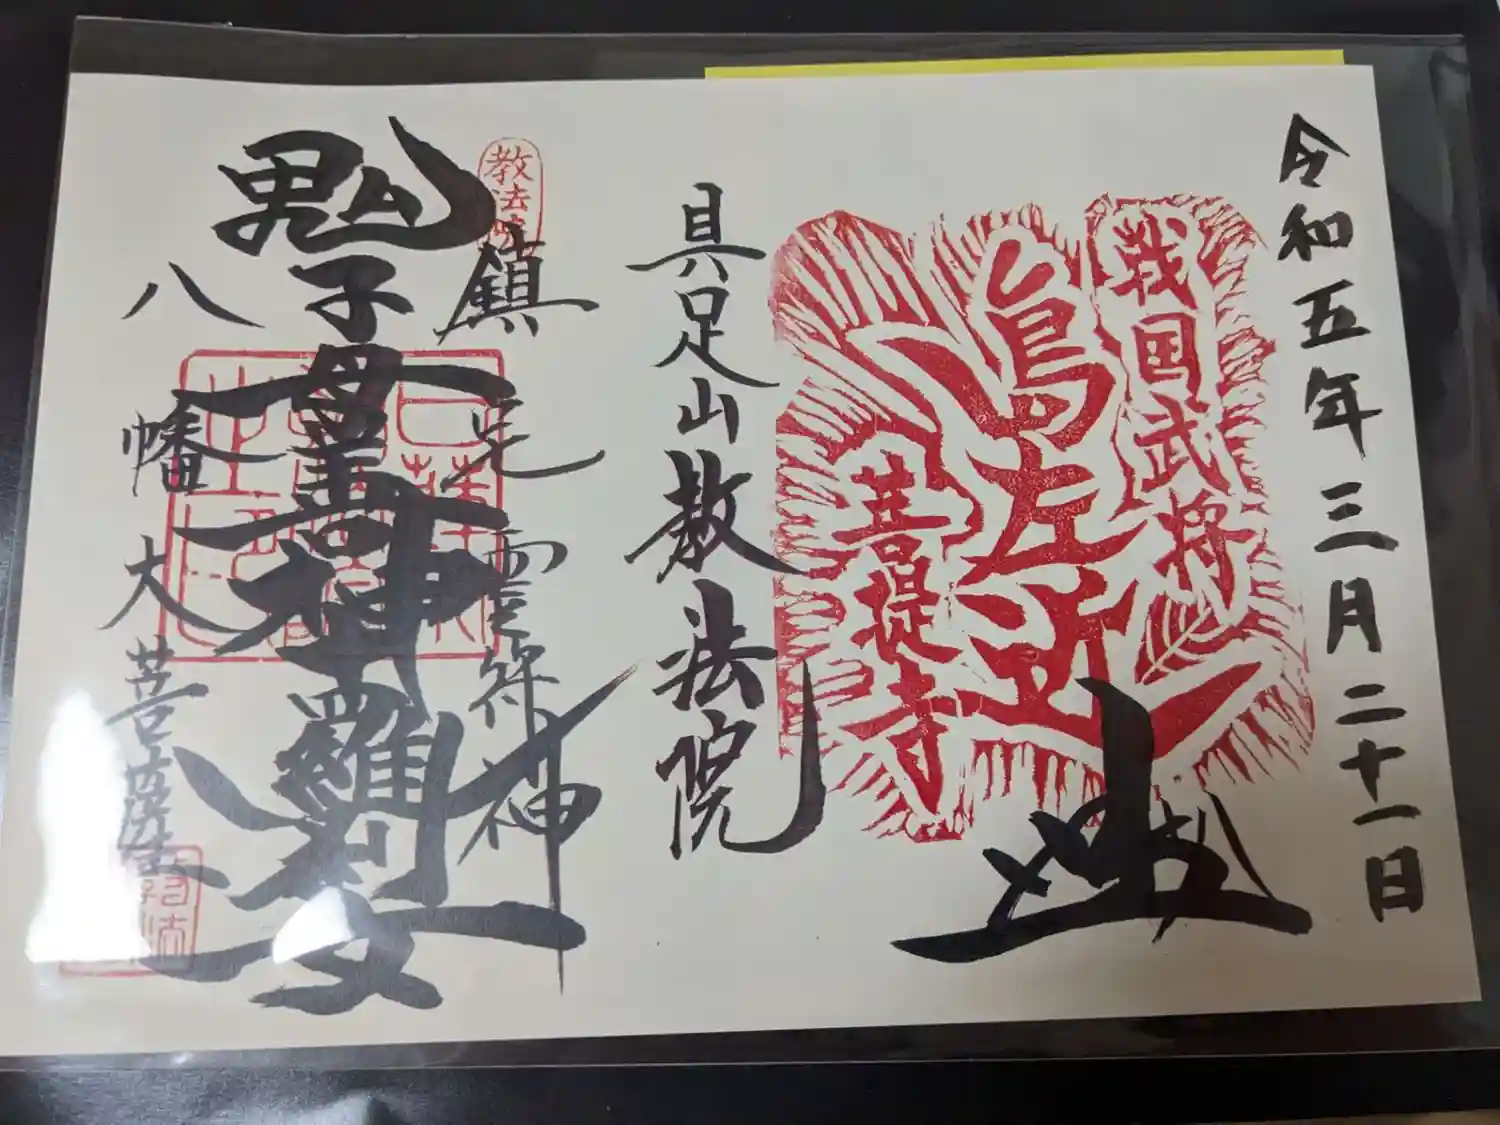 令和五年三月二十一日
戦国武将
島左近
菩提寺
具足山教法院
教法院
鎮宅霊符神
鬼子母善神
羅刹女
八幡大菩薩